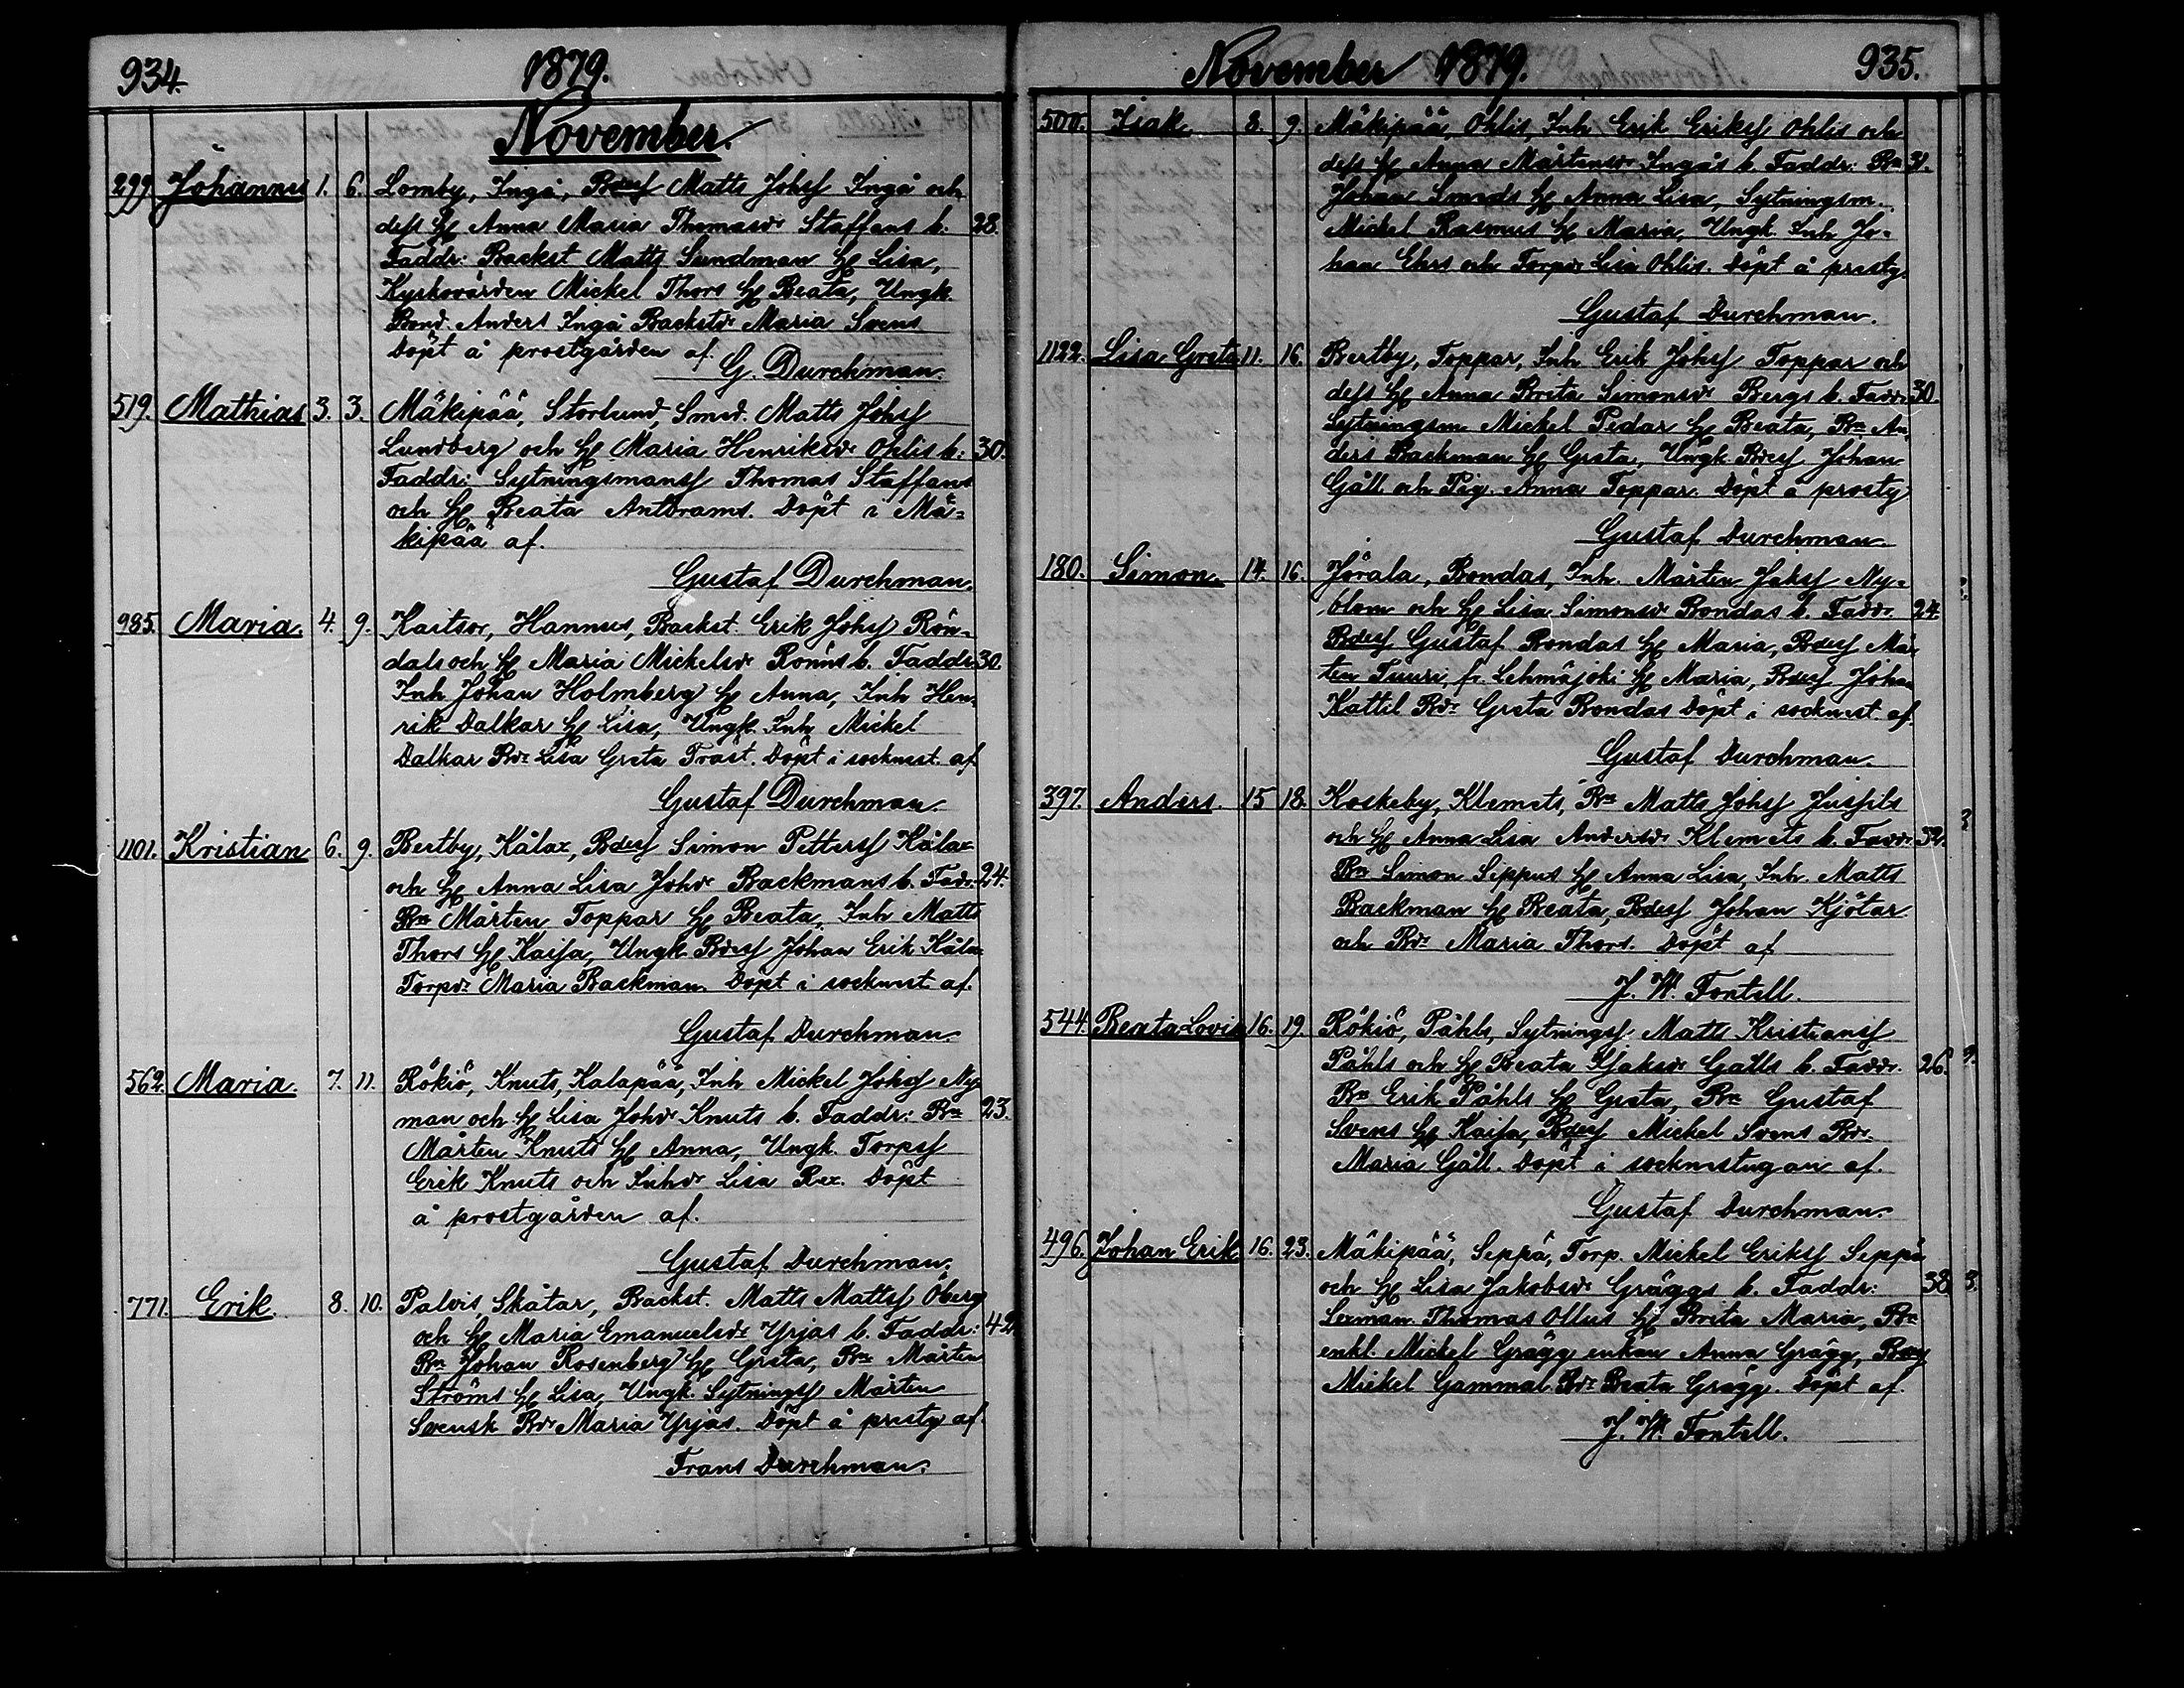 934. 1879.
November.
299. Johannes 1. 6. Lomby, Ingå, Bdesf Matts Johsf Ingå och
dess H. Anna Maria Thomasdr Staffans b. 28.
Faddr: Backst Matts Sundman H. Lisa,
Kyrkovärden Mickel Thors H. Beata, Ungk.
Bond. Anders Ingå Backstdr Maria Svens
Döpt å prostgården af.
G. Durchman.
519. Mathias 3. 3. Mäkipää, Storlund, Smed. Matts Johsf
Lundberg och H. Maria Henriksdr Ohlis b: 30.
Faddr: Sytningsmansf Thomas Staffans
och H. Beata Antbrams. Döpt i Mä=
kipää af.
Gustaf Durchman.
985. Maria. 4. 9. Kaitsor, Hannus, Backst. Erik Johsf Rön=
dals och H. Maria Mickelsdr Ronns b. Faddr. 30.
Inh Johan Holmberg H. Anna, Inh Hen=
rik Dalkar H. Lisa, Ungk. Inh Mickel
Dalkar Bdr Lisa Greta Träst. Döpt i socknest. af
Gustaf Durchman.
1101. Kristian 6. 9. Bertby, Kålax, Bdesf Simon Pettersf Kålax
och H. Anna Lisa Johdr Backmans b. Fadr. 24.
Bn Mårten Toppar H. Beata, Inh Matts
Thors H. Kaisa, Ungk. Bdesf Johan Erik Kålax
Torpdr Maria Backman. Döpt i socknest. af.
Gustaf Durchman.
562. Maria. 7. 11. Rökiö, Knuts, Kalapää, Inh Mickel Johsf Ny
man och H. Lisa Johdr Knuts b. Faddr: Bn 23.
Mårten Knuts H. Anna, Ungk. Torpsf
Erik Knuts och Inhdr Lisa Rex. Döpt
å prostgården af.
Gustaf Durchman.
771. Erik. 8. 10. Palvis, Skåtar, Backst. Matts Mattsf Öberg
och H. Maria Emanuelsdr Yrjas b. Faddr: 42
Bn Johan Rosenberg H. Greta, Bn Mårten
Ströms H. Lisa, Ungk. Sytningsf Mårten
Svensk Bdr Maria Yrjas. Döpt å prostg af.
Frans Durchman.
November 1879. 935.
500. Isak 8. 9. Mäkipää, Ohlis, Inh Erik Eriksf Ohlis och
dess H. Anna Mårtensdr Ingås b. Faddr: Bn 31.
Johan Smeds H. Anna Lisa, Sytningsm.
Mickel Rasmus H. Maria, Ungk. Inh Jo=
han Ehrs och Torpdr Lisa Ohlis. Döpt å prostg.
Gustaf Durchman.
1122. Lisa Greta 11. 16. Bertby, Toppar, Inh Erik Johsf Toppar och
dess H. Anna Breta Simonsdr Bergs b. Faddr 30.
Sytningsm. Mickel Pedar H. Beata, Bn An
ders Backman H. Greta, Ungk Bdesf Johan
Gåll och Pig. Anna Toppar. Döpt å prostg
Gustaf Durchman.
180. Simon. 14. 16. Jörala, Bondas, Inh. Mårten Johsf Ny=
blom och H. Lisa Simonsdr Bondas b. Faddr. 24.
Bdesf Gustaf Bondas H. Maria, Bdesf Mår
ten Tuuri, fr. Lehmäjoki H. Maria, Bdesf Johan
Kattil Bdr Greta Bondas Döpt i socknest. af
Gustaf Durchman.
397. Anders. 15 18. Koskeby, Klemets, Bn Matts Johsf Jussils
och H. Anna Lisa Andersdr Klemets b. Faddr 32.
Bn Simon Seppus H. Anna Lisa, Inh. Matts
Backman H. Beata, Bdesf Johan Kjötar
och Bdr Maria Thors. Döpt af
J. W. Fontell.
544. Beata Lovisa 16. 19. Rökiö, Påhls, Sytningsf Matts Kristiansf
Påhls och H. Beata Isaksdr Galls b. Faddr. 26.
Bn Erik Påhls H. Greta, Bn Gustaf
Svens H. Kaisa, Bdesf Mickel Svens Bdr.
Maria Gåll. Döpt i socknestugan af.
Gustaf Durchman.
496. Johan Erik 16. 23. Mäkipää, Seppä, Torp. Mickel Eriksf Seppä
och H. Lisa Jakobsdr Gräggs b. Faddr: 38.
Sexman. Thomas Ollus H. Breta Maria, Bn
enkl. Mickel Grägg enkan Anna Grägg, Bdesf
Mickel Gammal Bdr Beata Grägg. Döpt af.
J. W. Fontell.